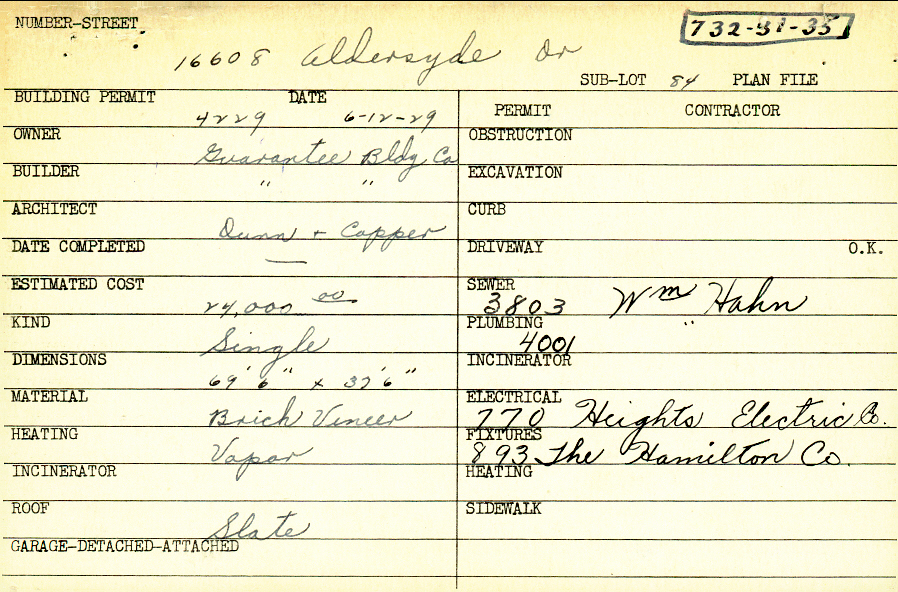 NUMBER-STREET
732-31-35
16608 Aldersyde Dr
SUB-LOT 84 PLAN FILE
BUILDING PERMIT DATE
4229 6-12-29
OWNER
Guarantee Bldg Co
BUILDER
" "
ARCHITECT
Dunn + Copper
DATE COMPLETED
—
ESTIMATED COST
24,000 00
KIND
Single
DIMENSIONS
69' 6" x 37' 6"
MATERIAL
Brick Veneer
HEATING
Vapor
INCINERATOR
ROOF
Slate
GARAGE-DETACHED-ATTACHED
PERMIT CONTRACTOR
OBSTRUCTION
EXCAVATION
CURB
DRIVEWAY O.K.
SEWER
3803 Wm Hahn
PLUMBING
4001 "
INCINERATOR
ELECTRICAL
770 Heights Electric Co.
FIXTURES
893 The Hamilton Co.
HEATING
SIDEWALK